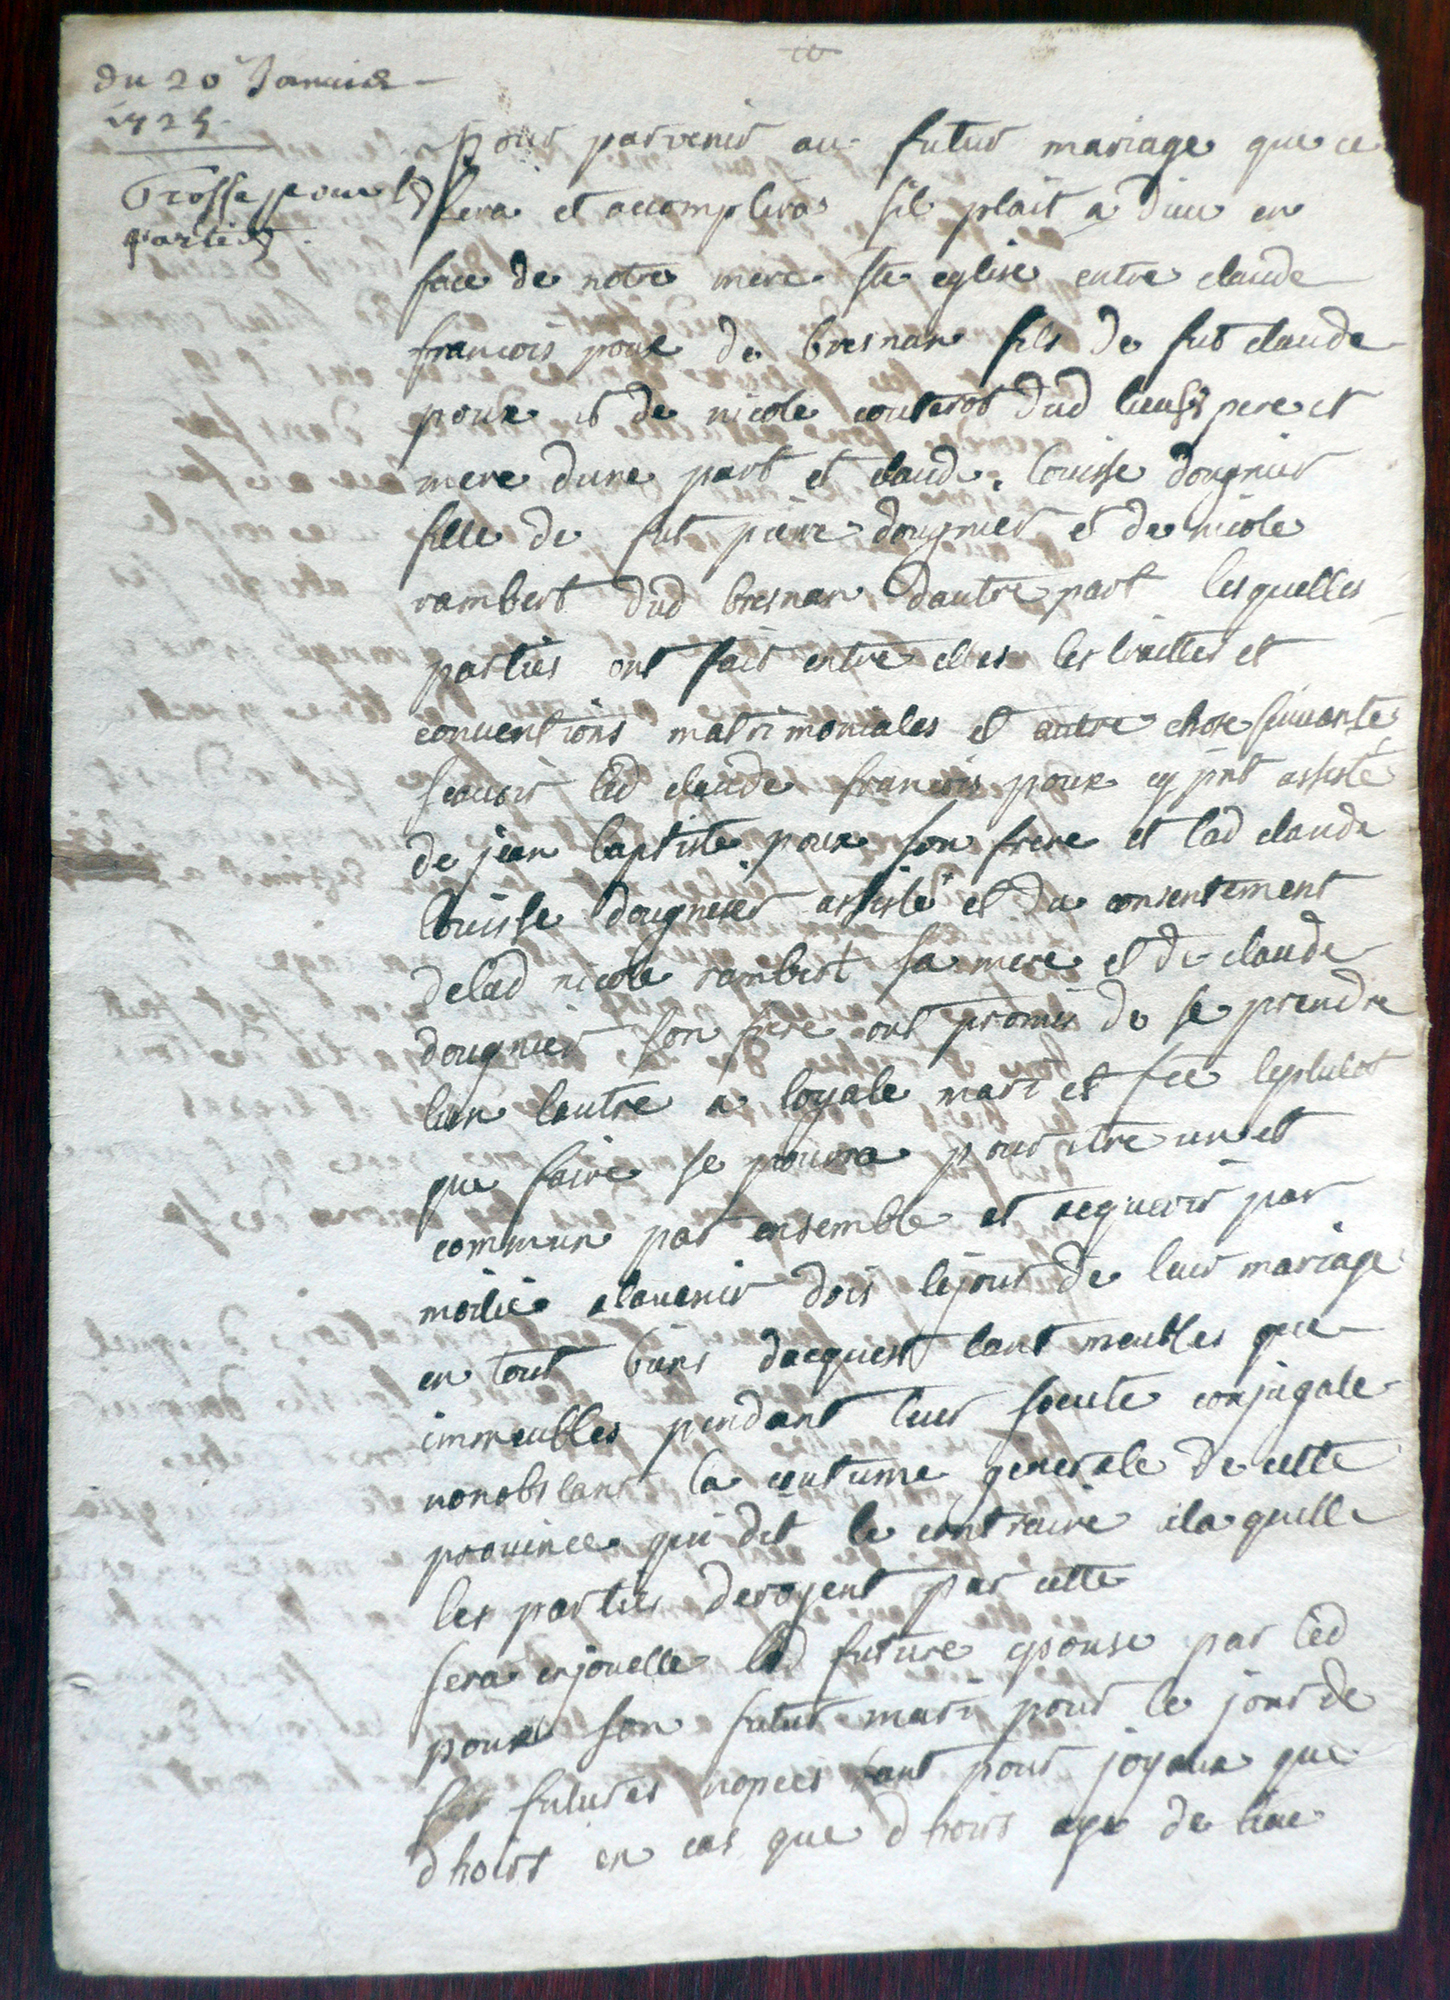 du 20 Janvier
1725
Grosse pour les
parties
pour parvenir au futur mariage que ce
fera et accomplira sil plait a dieu en
face de notre mere ste eglise entre claude
francois poux de bresnan fils de fut claude
poux et de nicole couterot dud lieu ses pere et
mere dune part et claude louisse dougnier
fille de fut pierre dougnier et de nicole
rambert dud bresnan dautre part lesquelles
parties ont fait entre elles les traittes et
conventions matrimoniales et autre chose suivantes
scavoir led claude francois poux cy pnt assisté
de jean baptiste poux son frere et lad claude
louisse dougnier assisté et du consentement
de lad nicole rambert sa mere et de claude
dougnier son frere ont promis de se prendre
lun lautre a loyale mari et fee le plutot
que faire se pourra pour etre un et
commun par ensemble et acquerir par
moitié alavenir dois le jour de leur mariage
en tout biens dacquest tant meubles que
immeubles pendant leur societe conjugale
nonobstant la coutume generale de cette
province qui dit le contraire a laquelle
les parties derogent par cette
sera enjouelle lad future epouse par led
poux son futur mari pour le jour de
ses futures nopces tant pour joyaux que
dhoirs en cas que dhoirs aye de line